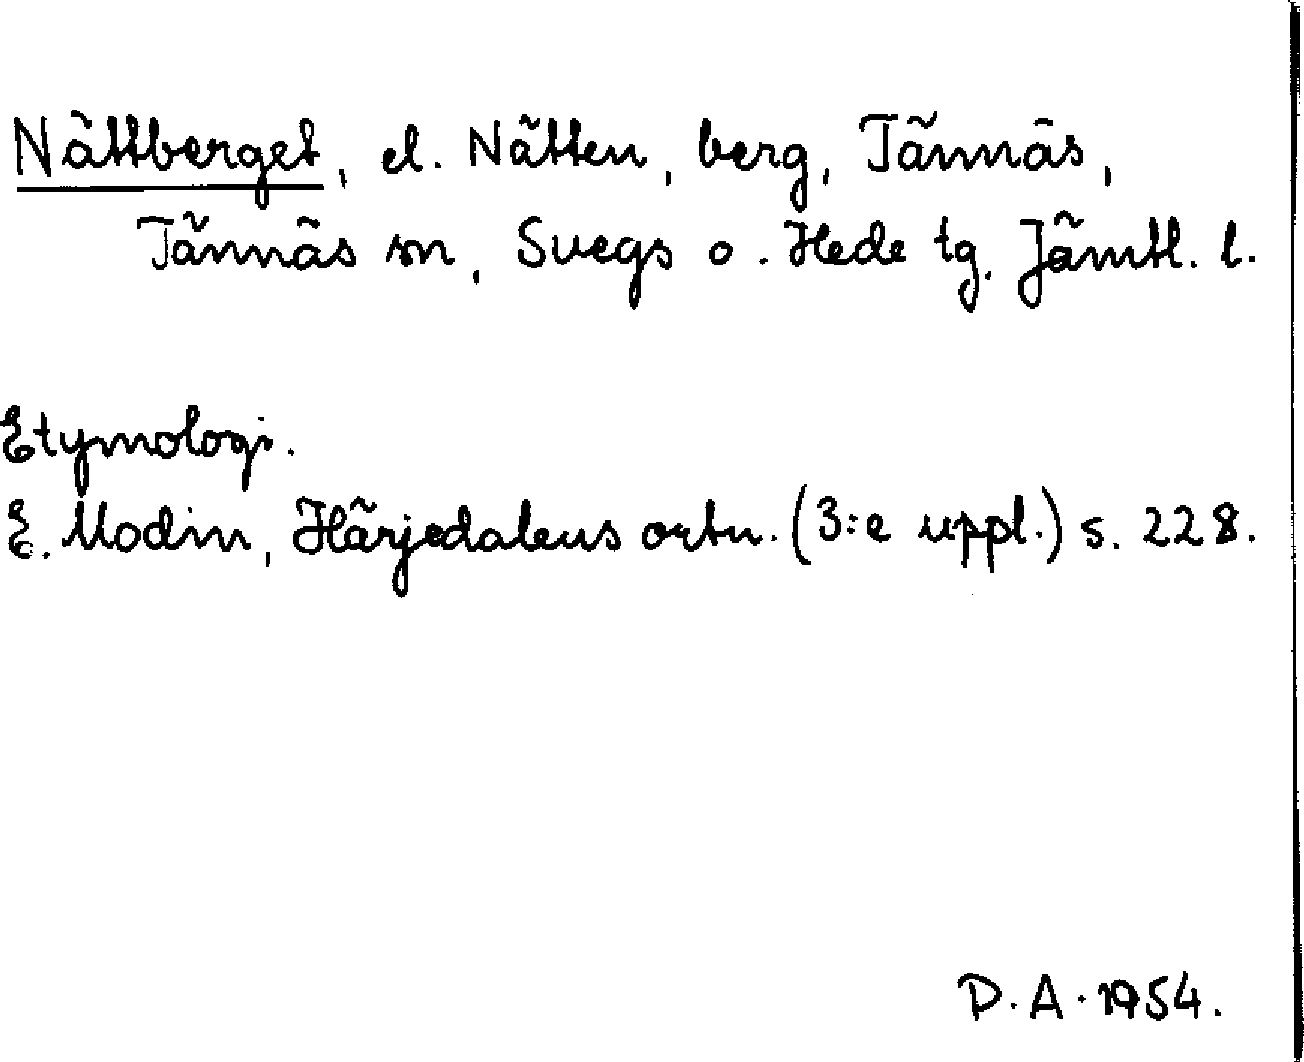 Nättberget, el. Nätten, berg, Tännäs,
Tännäs sn, Svegs o. Hede tg. Jämtl. l.
Etymologi.
E. Modin, Härjedalens ortn. (3:e uppl.) s. 228.
D.A. 1954.